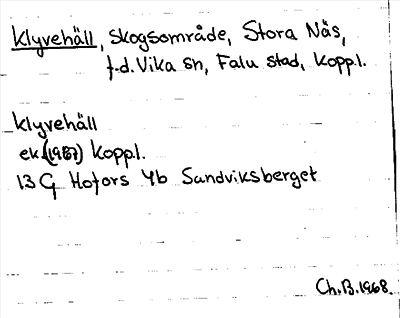 Klyvehäll, skogsområde, Stora Näs,
f.d. Vika sn, Falu stad, Koppl.
Klyvehäll
ek. (1967) Koppl.
13 G Hofors 4b Sandviksberget
Ch.B.1968.